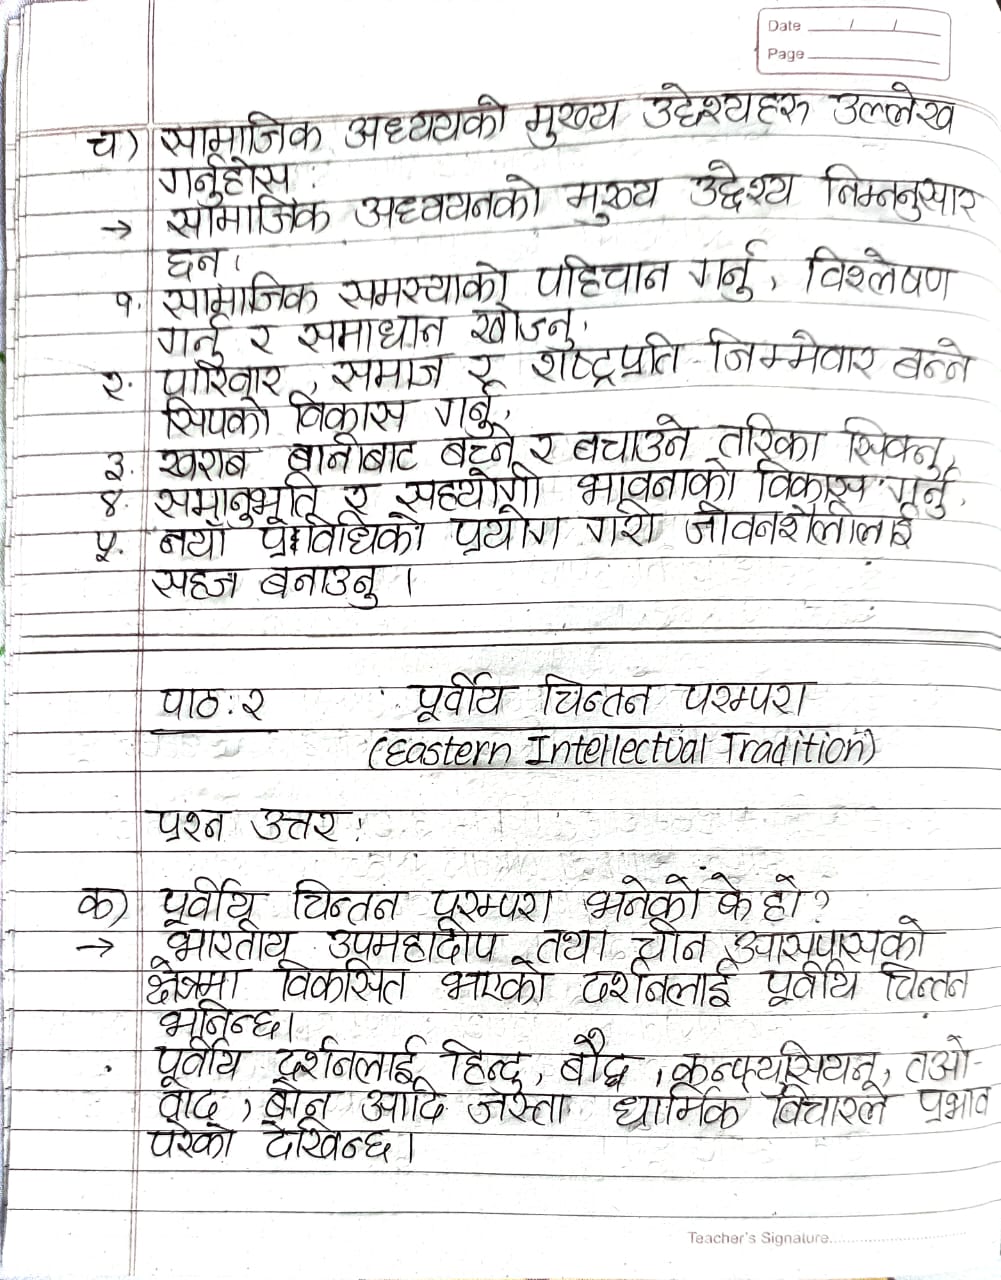 Date / /
Page
च) सामाजिक अध्ययको मुख्य उद्देश्यहरु उल्लेख
गर्नुहोस :
→ सामाजिक अध्ययनको मुख्य उद्देश्य निम्ननुसार
छन।
१. सामाजिक समस्याको पहिचान गर्नु, विश्लेषण
गर्नु र समाधान खोज्नु,
२. पारिवार, समाज र राष्ट्रप्रति जिम्मेवार बन्ने
सिपको विकास गर्नु,
३. खराब बानीबाट बच्ने र बचाउने तरिका सिक्नु,
४. समानुभूति र सहयोगी भावनाको विकास गर्नु,
५. नयाँ प्रविधिको प्रयोग गरी जीवनशैलीलाई
सहज बनाउनु ।
पाठ : २ पूर्वीय चिन्तन परम्परा
(Eastern Intellectual Tradition)
प्रश्न उत्तर :
क) पूर्वीय चिन्तन परम्परा भनेको के हो?
→ भारतीय उपमहादीप तथा चीन आसपासको
क्षेत्रमा विकसित भएको दर्शनलाई पूर्वीय चिन्तन
भनिन्छ।
. पूर्वीय दर्शनलाई हिन्दु, बौद्ध, कन्फ्युसियन, तओ-
वाद, बोन आदि जस्ता धार्मिक विचारले प्रभाव
परेको देखिन्छ।
Teacher's Signature